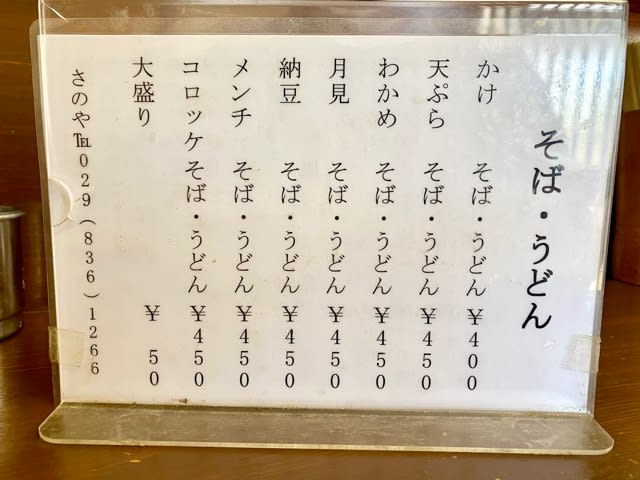 そば・うどん
かけ そば・うどん ¥400
天ぷら そば・うどん ¥450
わかめ そば・うどん ¥450
月見 そば・うどん ¥450
納豆 そば・うどん ¥450
メンチ そば・うどん ¥450
コロッケ そば・うどん ¥450
大盛り ¥50
さのや℡029(836)1266